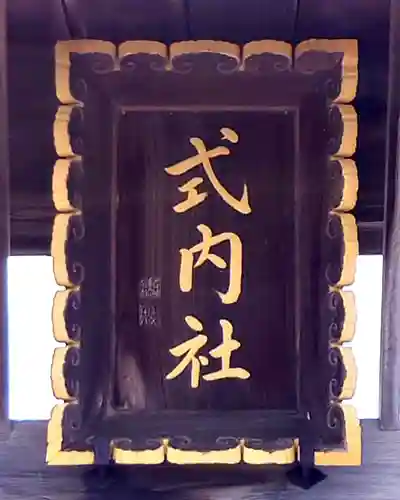 式内社